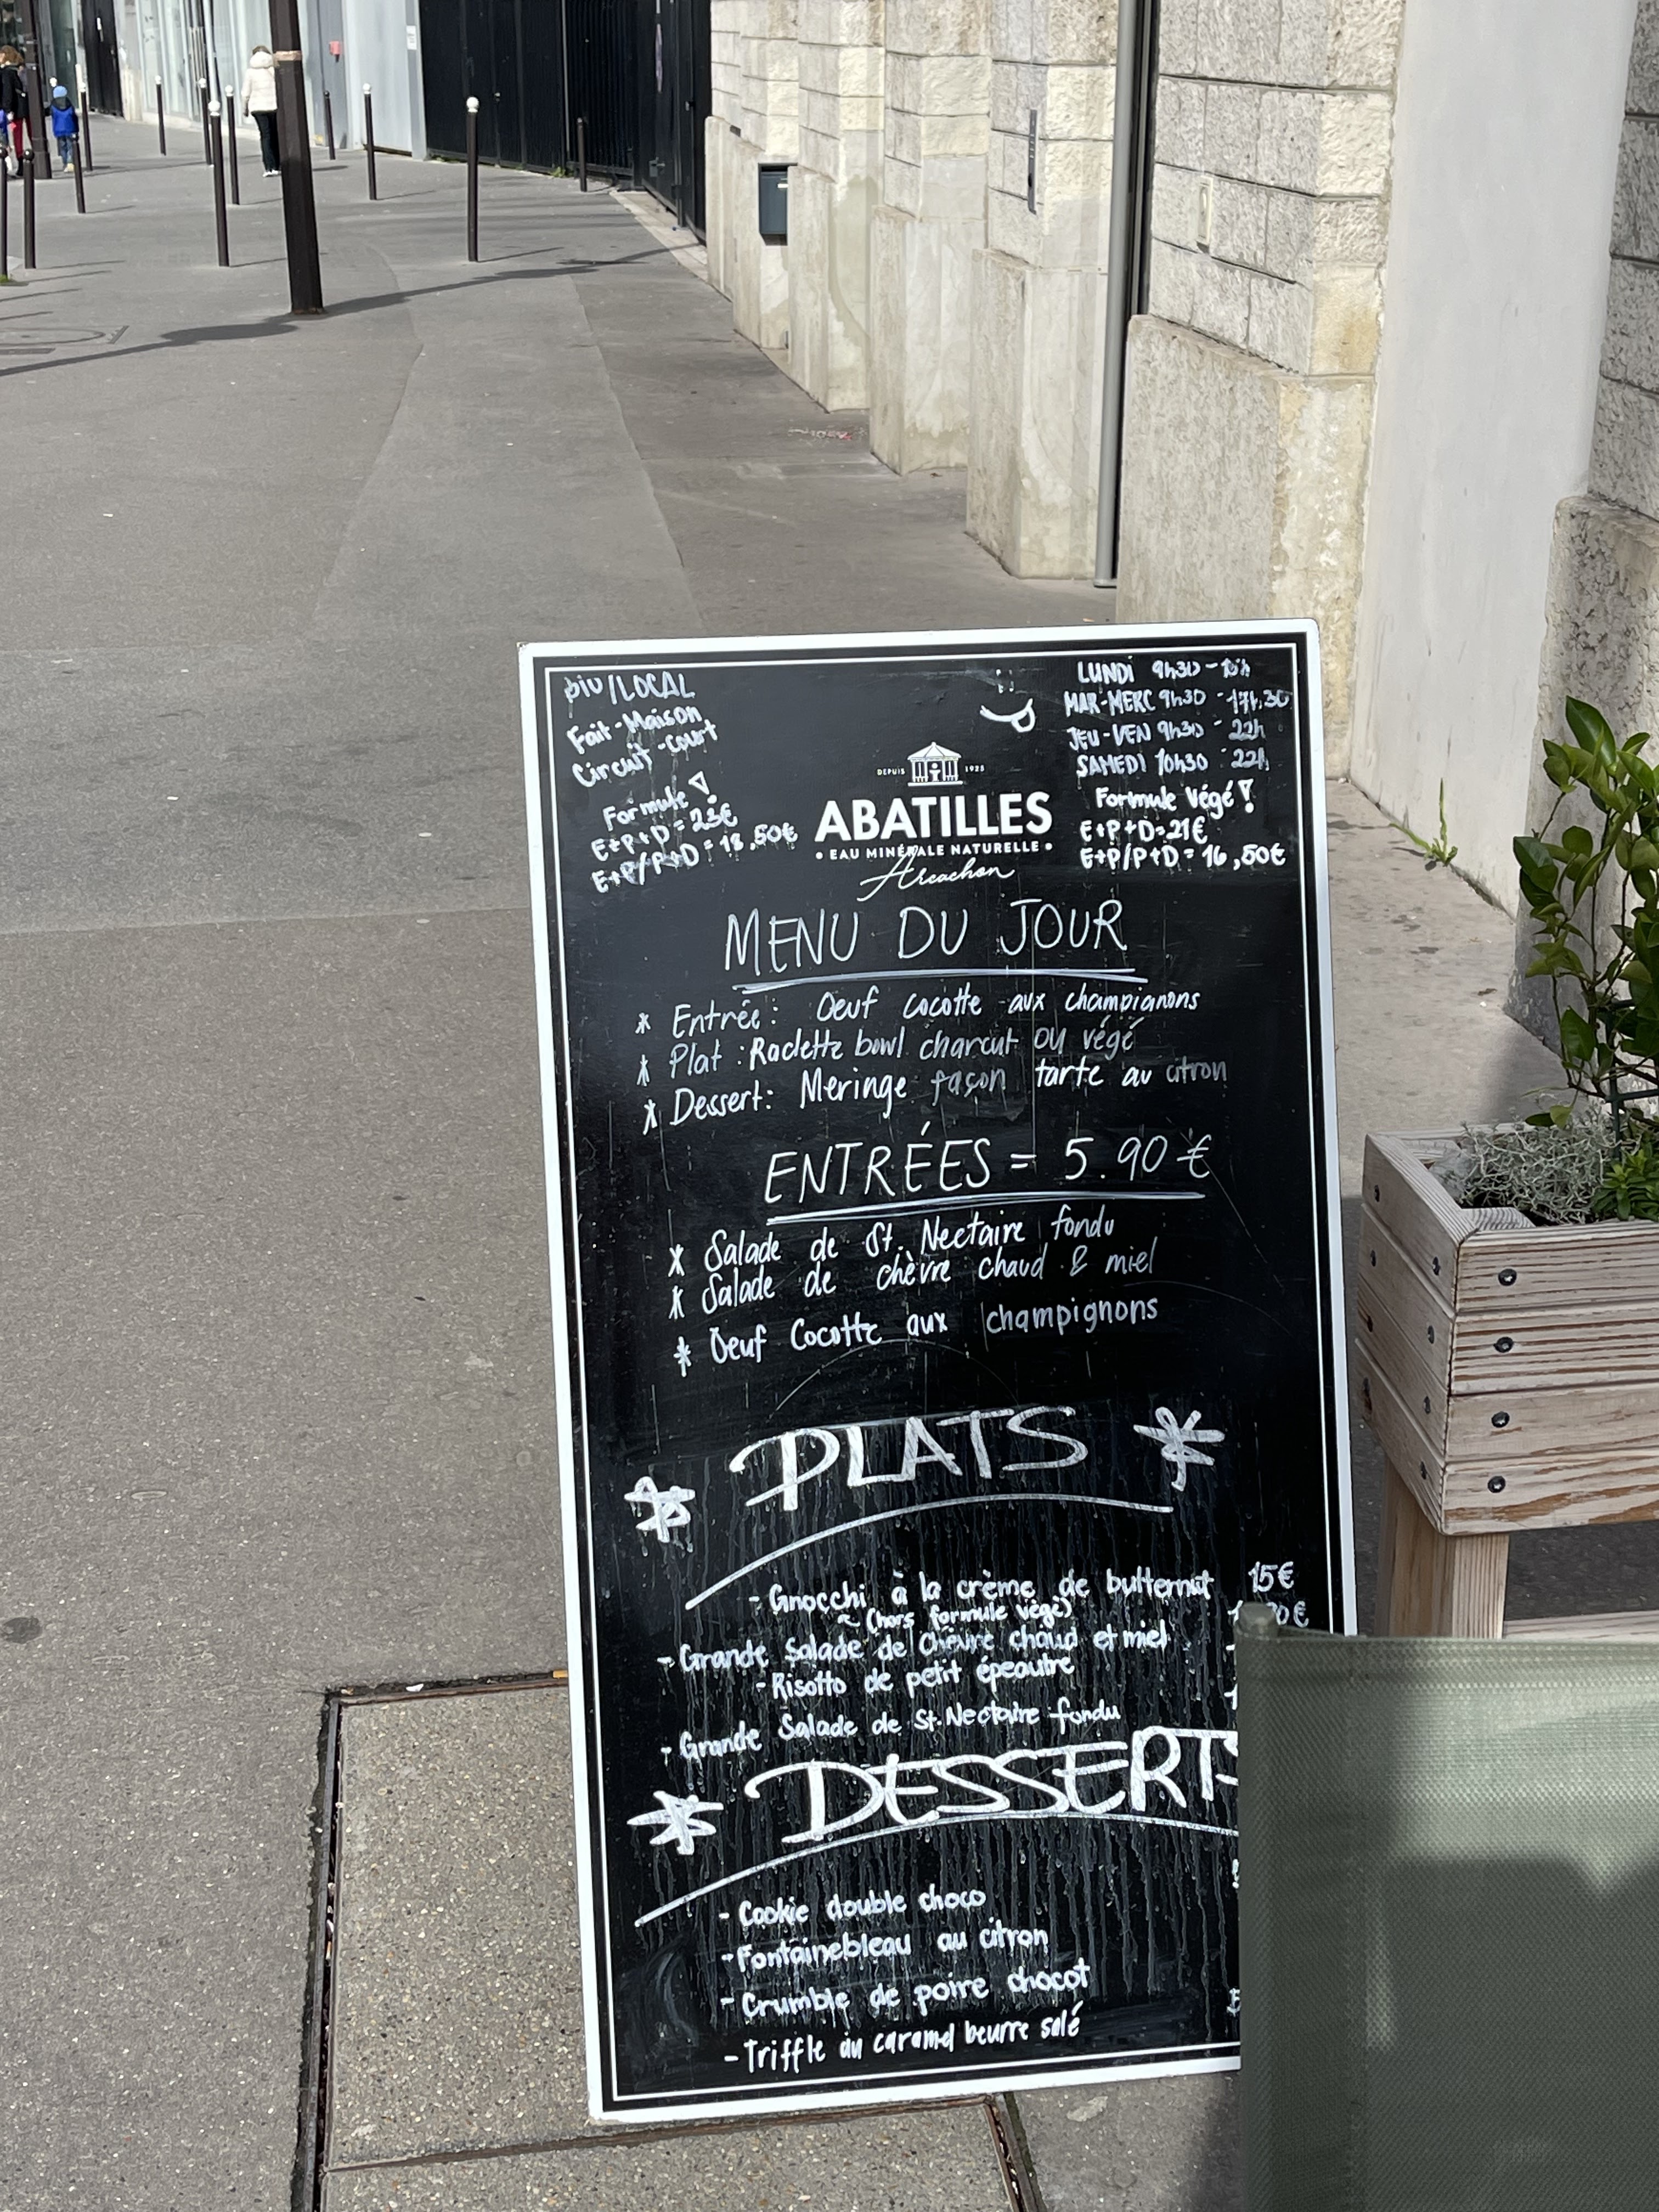 BIO/LOCAL
Fait-Maison
Circuit-Court
Formule !
E+P+D = 23€
E+P/P+D = 18,50€
LUNDI 9h30 -
MAR-MERC 9h30 - 17h30
JEU-VEN 9h30 - 22h
SAMEDI 10h30 - 22h
Formule Végé !
E+P+D=21€
E+P/P+D = 16,50€
DEPUIS 1925
ABATILLES
• EAU MINÉRALE NATURELLE •
Arcachon
MENU DU JOUR
* Entrée: Oeuf cocotte aux champignons
* Plat : Raclette bowl charcut OU végé
* Dessert: Meringe façon tarte au citron
ENTRÉES = 5.90 €
* Salade de St. Nectaire fondu
* Salade de chèvre chaud & miel
* Oeuf Cocotte aux champignons
* PLATS *
- Gnocchi à la crème de butternut 15€
~ (hors formule végé)
- Grande Salade de Chèvre chaud et miel
- Risotto de petit épeautre
- Grande Salade de St-Nectaire fondu
* DESSERTS
- Cookie double choco
- Fontainebleau au citron
- Crumble de poire chocot
- Triffle au caramel beurre salé